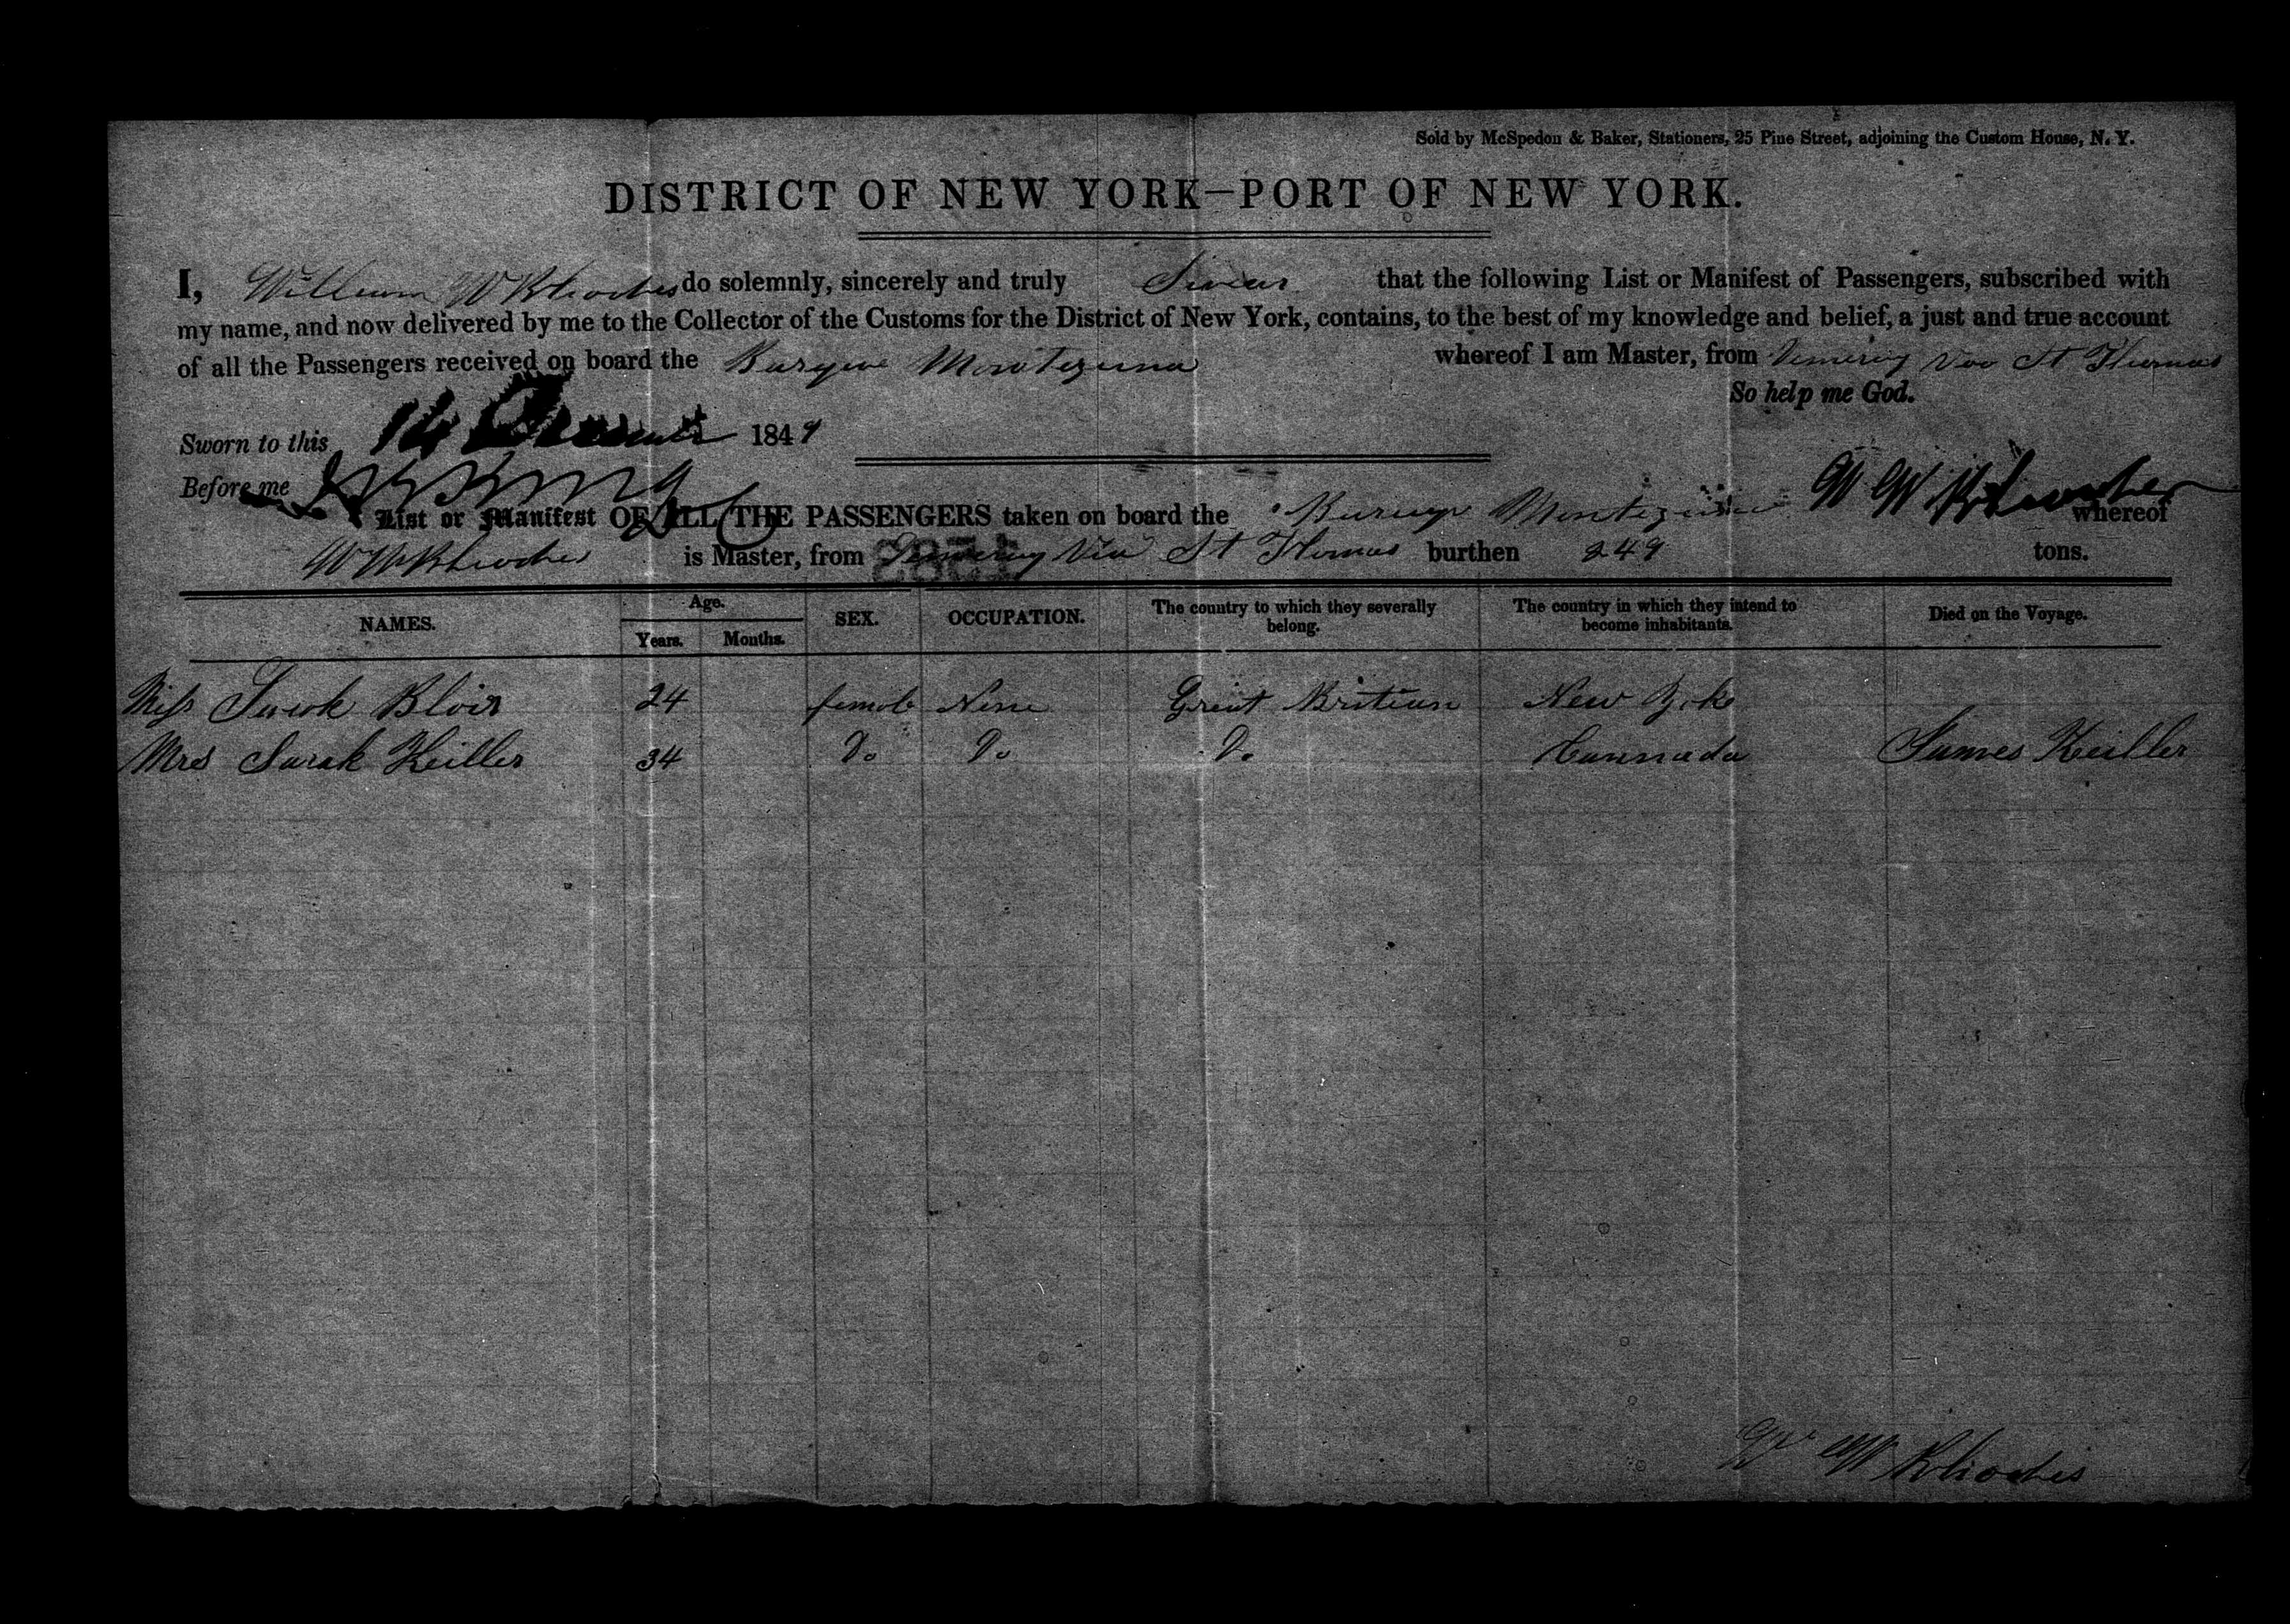 Sold by McSpedon & Baker, Stationers, 25 Pine Street, adjoining the Custom House, N. Y.
DISTRICT OF NEW YORK—PORT OF NEW YORK.
I, William W Rhodes do solemnly, sincerely and truly Swear that the following List or Manifest of Passengers, subscribed with
my name, and now delivered by me to the Collector of the Customs for the District of New York, contains, to the best of my knowledge and belief, a just and true account
of all the Passengers received on board the Barque Montezuma whereof I am Master, from St Thomas
So help me God.
Sworn to this 14 1849
Before me W W Rhodes
List or Manifest OF ALL THE PASSENGERS taken on board the Barque Montezuma whereof
W W Rhodes is Master, from Via St Thomas burthen 249 tons.
NAMES. Age. Years. Months. SEX. OCCUPATION. The country to which they severally belong. The country in which they intend to become inhabitants. Died on the Voyage.
Miss Blair 24 female None Great Britian New
Mrs Sarah Keiller 34 Do Do Do Cannada James Keiller
W W Rhodes